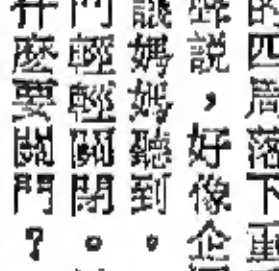 的四周落下重
說，好像企
讓媽媽聽到。
門輕輕關閉。
什麼要關門？